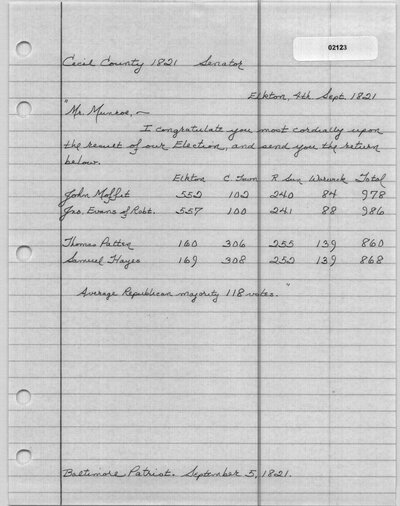 02123
Cecil County 1821 Senator
Elkton, 4th Sept. 1821
"Mr. Munroe, ~
I congratulate you most cordially upon
the result of our Election, and send you the return
below.
Elkton C Town R Sun Warwick Total
John Moffit 552 102 240 84 978
Jno. Evans of Robt. 557 100 241 88 986
Thomas Patten 160 306 255 139 860
Samuel Hayes 169 308 252 139 868
Average Republican majority 118 votes."
Baltimore Patriot. September 5, 1821.